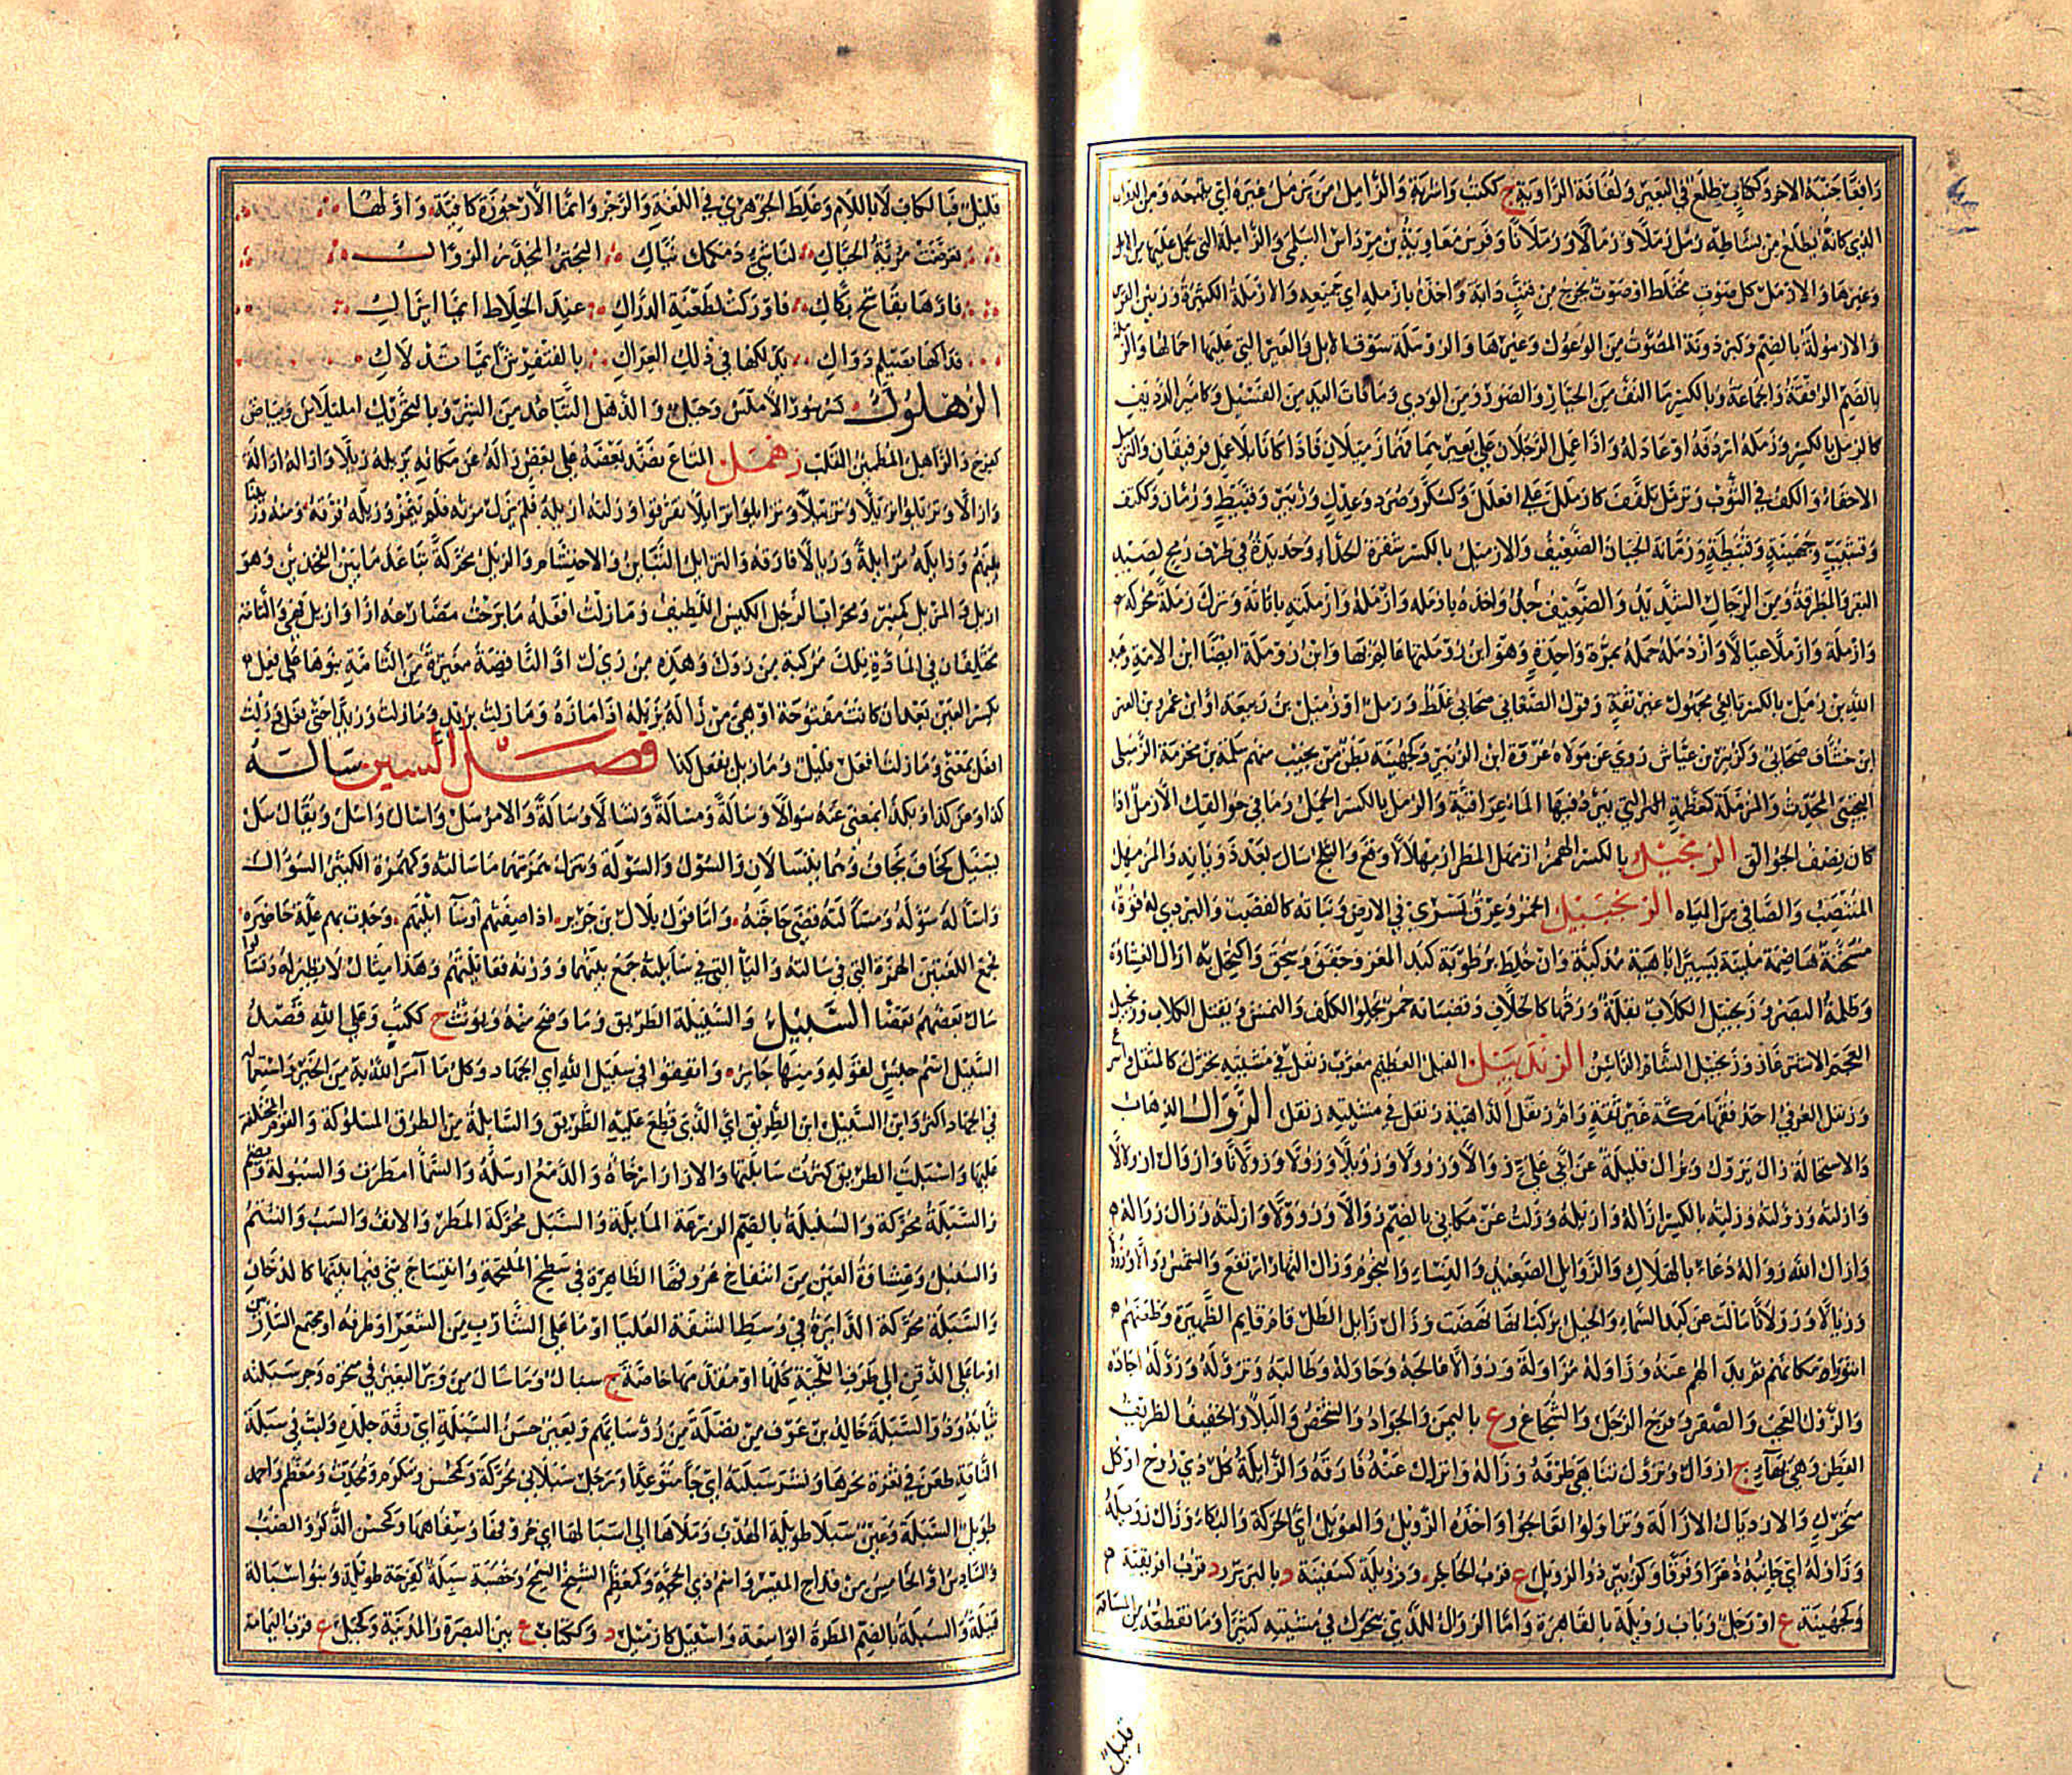 رافعا جنبه الاخر وككتاب ظلع في البعير ولفافة الراوية ج ككتب واشربة والزامل من يزمل غيره اي يتبعه ومن الدواب
الذي كانه يظلع من نشاطه زمل زملا وزمالا وزملانا وفرس معاوية بن مرداس السلمي والزاملة التي يحمل عليها من الابل
وغيرها والازمل كل صوت مختلط او صوت يخرج من قنب دابة واخذه بازمله اي جميعه والازملة الكثيرة ورنين القوس
والازمولة بالضم وكبرذونة المصوت من الوعول وغيرها والزوملة سوق الابل والعير التي عليها احمالها والزملة
بالضم الرفقة والجماعة وبالكسر ما التف من الجبار والصور من الودي وما فات اليد من الفسيل وكامير الرديف
كالزمل بالكسر وزمله اردفه او عادله واذا عمل الرجلان على بعيريهما فهما زميلان فاذا كانا بلا عمل فرفيقان والتزميل
الاخفاء والكف في الثوب وتزمل تلفف كازمل على افعل وكسكر وصرد وعدل وزبير وقبيط ورمان وككتف
وقسيب وجهينة وقبيطة ورمانة الجبان الضعيف والازميل بالكسر شفرة الحذاء وحديدة في طرف رمح لصيد
البقر والمطرقة ومن الرجال الشديد والضعيف ضد واخذه بازمله وازمله وازملته باثاثه وترك زملة محركة
وازملة وازملا عيالا وازدمله حمله بمرة واحدة وهو ابن زوملتها عالم بها وابن زوملة ايضا ابن الامة وعبد
الله بن زمل بالكسر تابعي مجهول غير ثقة وقول الصغاني صحابي غلط وزمل او زميل بن ربيعة او ابن عمرو بن العتر
ابن خشاف صحابي وكزبير بن عياش روى عن مولاه عروة ابن الزبير وكجهينة بطن من تجيب منهم سلمة بن مخرمة الزميلي
التجيبي المحدث والمزملة كمعظمة التي يبرد فيها الماء عراقية والزمل بالكسر الحمل وما في جوالقك الا زمل اذا
كان نصف الجوالق الزنجيل بالكسر ازمهل المطر ازمهلالا وقع والثلج سال بعد ذوبانه والمزمهل
المنتصب والصافي من المياه الزنجبيل الخمر وعرق تسري في الارض ونباته كالقصب والبردي له قوة
مسخنة هاضمة ملينة يسيرا باهية مذكية وان خلط برطوبة كبد المعز وجفف وسحق واكتحل به ازال الغشاوة
وظلمة البصر وزنجبيل الكلاب بقلة ورقها كالخلاف وقضبانه حمر يجلو الكلف والنمش ويقتل الكلاب وزنجبيل
العجم الاشترغاز وزنجبيل الشام الراسن الزندبيل الفيل العظيم معرب زنفل في مشيته تحرك كالمثقل واسرع
وزنفل العرفي احد فقهاء مكة غير ثقة وام زنفل الداهية زنقل في مشيته زنقل الزوال الذهاب
والاستحالة زال يزول ويزال قليلة عن ابي علي زوالا وزؤولا وزويلا وزولا وزولانا وازول ازولالا
وازلته وزولته وزلته بالكسر ازاله وازيله وزلت عن مكاني بالضم زوالا وزوولا وازلته وزال زواله
وازال الله زواله دعاء بالهلاك والزوايل الصيد والنساء والنجوم وزال النهار ارتفع والشمس زوالا وزؤولا
وزيالا وزولانا مالت عن كبد السماء والخيل بركبانها نهضت وزال زايل الظل قام قايم الظهيرة وظعنهم
ائتووا مكانهم ثم بدا لهم عنه وزاوله مزاولة وزوالا عالجه وحاوله وطالبه وتزوله وزوله اجاده
والزول العجب والصقر وفرج الرجل والشجاع وع باليمن والجواد والشخص والبلاء والخفيف الظريف
الفطن وهي بهاء ج ازوال وتزول تناهى ظرفه وزاله وانزال عنه فارقه والزايلة كل ذي روح او كل
متحرك والازديال الازالة وتزاولوا تعالجوا واخذه الزويل والعويل اي الحركة والبكاء وزال زويله
وزاوله اي جانبه ذعرا وفرقا وكزبير ذو الزويل ع قرب الحاجر وزويلة كسفينة د بالبربر د قرب افريقية
وكجهينة ع او رجل وباب زويلة بالقاهرة واما الزوال للذي يتحرك في مشيته كثيرا وما يقطعه من المسافة
قليل
قليل فبالكاف لا باللام وغلط الجوهري في اللغة والرجز وانما الارجوزة كافية واولها
تعرضت مريئة الحياك لناشئ دمكمك نياك البحتر المجذر الزواك
فارها بقاسح بكاك فاوزكت لطعنه الدراك عند الخلاط ايما ايزاك
فداكها بصيلم دواك يدلكها في ذلك العراك بالقنفريش ايما تدلاك
الزهلول كسرسور الاملس وجبل والزهل التباعد من الشر وبالتحريك امليلاس وبياض
كفرح والزاهل المطمئن القلب زهمل المتاع نضد بعضه على بعض زاله عن مكانه يزيله زيلا وازاله ازالة
وازالا وتزيلوا تزيلا وتزييلا وتزايلوا تزايلا تفرقوا وزلته ازيله فلم ينزل مزته فلم ينمز وزيله فرقه ومنه فزيلنا
بينهم وزايله مزايلة وزيالا فارقه والتزايل التباين والاحتشام والزيل محركة تباعد ما بين الفخذين وهو
ازيل والمزيل كمنبر ومحراب الرجل الكيس اللطيف وما زلت افعله ما برحت مضارعه ازال وازيل قليلة والتامة
مختلفان في المادة تلك مركبة من زول وهذه من زيل او الناقصة مغيرة من التامة بنوها على فعل
بكسر العين بعد ان كانت مفتوحة او هي من زاله يزيله اذا مازه وما زلت بزيد وما زلت وزيدا حتى فعل وزلت
افعل بمعنى ما زلت افعل قليل وما زيل يفعل كذا فصل السين سالته
كذا وعن كذا وبكذا بمعنى عنه سوالا وسالة ومسالة وتسالا وسالة والامر سل واسال واسل ويقال سال
يسال كخاف يخاف وهما يتساولان والسول والسولة وتترك همزتهما ما سالته وكهمزة الكثير السوال
واساله سؤله ومسالته قضى حاجته واما قول بلال بن جرير اذا ضفتهم او سآيلتهم وجدت بهم علة حاضره
فجمع اللغتين الهمزة التي في سالته والياء التي في سايلته جمع بينهما ووزنه فعايلتهم وهذا مثال لا نظير له وتساءلوا
سال بعضهم بعضا السبيل والسبيلة الطريق وما وضح منه ويونث ج ككتب وعلى الله قصد
السبيل اسم جنس لقوله ومنها جاير وانفقوا في سبيل الله اي الجهاد وكل ما امر الله به من الخير واستعماله
في الجهاد اكثر وابن السبيل ابن الطريق اي الذي قطع عليه الطريق والسابلة من الطرق المسلوكة والقوم المختلفة
عليها واسبلت الطريق كثرت سابلتها والازار ارخاه والدمع ارسله والسماء امطرت والسبولة ويضم
والسبلة محركة والسنبلة بالضم الزرعة المايلة والسبل محركة المطر والانف والسب والشتم
والسنبل وغشاوة العين من انتفاخ عروقها الظاهرة في سطح الملتحمة وانتساج شيء فيما بينهما كالدخان
والسبلة محركة الدايرة في وسط الشفة العليا او ما على الشارب من الشعر او طرفه او مجتمع الشاربين
او ما على الذقن الى طرف اللحية كلها او مقدمها خاصة ج سبال وما سال من وبر البعير في منحره وجر سبلته
ثيابه وذو السبلة خالد بن عوف بن نضلة من رؤسايهم وبعير حسن السبلة اي رقة جلده ولتب في سبلة
الناقة طعن في ثغرة نحرها ونشر سبلته اي جاء متوعدا ورجل سبلاني محركة وكمحسن ومكرم ومحدث ومعظم واحمد
طويل السبلة وعين سبلاء طويلة الهدب وملأها الى اسبالها اي حروفها وشفاهها وكمحسن الذكر والضب
والسادس او الخامس من قداح الميسر واسم ذي الحجة وكمعظم الشيخ السمح وخصية سبلة كفرحة طويلة وبنو سبالة
قبيلة والسبلة بالضم المطرة الواسعة واسبيل كازميل د وككتاب ع بين البصرة والمدينة وكجبل ع قرب اليمامة